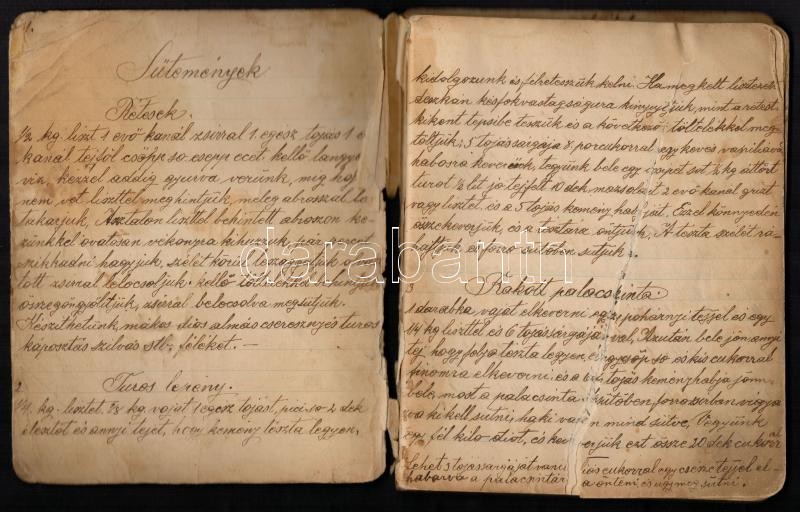 1.
Sütemények
Rétesek.
1/2 kg. liszt 1 evő kanál zsirral 1. egesz tojás 1 e
kanal tejföl csöpp so csepp eccet kellő langyo
viz, kézzel addig gyurva verünk, mig ho
nem vet liszttel meghintjük, meleg abrosszal le
takarjuk. Asztalon liszttel behintett abroszon ke
zünkkel ovatosan vékonyra kihuzzuk pár percre
szikhadni hagyjuk, szélét körül
tott zsirral lelocsoljuk. kellő töltelékkel
összegöngyölitjük, zsirral belocsolva megsütjük.
Készithetünk, mákos diós almás cseresznyés turos
káposztás szilvás stb. féléket. —
2.
Turos lepeny.
1/4. kg. lisztet 1/8 kg. vajat 1 egesz tojást, pici so 2 dek
élesztőt és annyi tejet, hogy kemény tészta legyen,
kidolgozunk és félreteszük kelni. Ha megkelt lisztezett
deszkán késfokvastagságura kinyujtjuk, mint a rétest
kikent tepsibe teszük és a következő töltelékkel meg
töltjük: 5 tojássargája 8. porcukorral egy keves vaniliával
habosra keverünk, tegyünk bele egy csipet sot 1/2 kg áttört
turot 1/2 lit jó tejfelt 10 dek mazsolát 2 evő kanal grizt
vagy lisztet, és a 5 tojás kemény habját. Ezzel könnyeden
összekeverjük, és a tésztára öntjük. A teszta szelét rá-
hajtjuk és forró sütőben sütjük.
3
Rakott palacsinta
1 darabka vajat elkeverni egy pohárnyi tejjel és egy
1/4 kg liszttel és 6 tojássárgájával, Azután bele jön annyi
tej, hogy folyo tészta legyen, egy csöpp so és kis cukorral
finomra elkeverni és a 6 tojás keményhabja jönn
bele, most a palacsinta sütőben, forro zsirban vagy va
va ki kell sütni, ha ki van mind sütve, Vegyünk
egy fél kilo diot, és keverjük ezt össze 20 dek cukorral
Lehet 3 tojassargáját vaniliás cukorral egy csesze tejjel el-
habarva a palacsintára önteni és ugy meg sütni.
darabanth